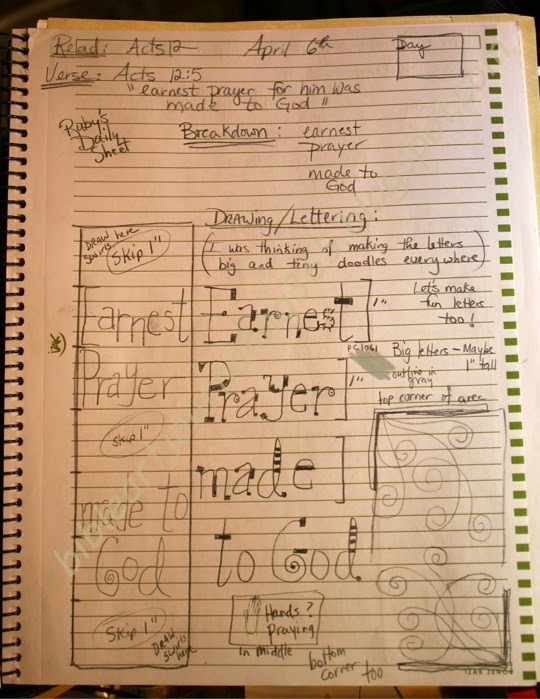 Read: Acts 12 April 6th Day
Verse: Acts 12:5
"earnest prayer for him was
made to God"
Ruby's
Daily
Sheet
Breakdown: earnest
prayer
made to
God
Drawing/Lettering:
(I was thinking of making the letters
big and tiny doodles everywhere)
DRAW here
swirls
Skip 1"
Let's make
fun letters
too!
Earnest Earnest 1"
PG1061
Big letters - Maybe
1" tall
outline in
gray
top corner of area
Prayer Prayer 1"
Skip 1"
made
made to
to God
God
Skip 1"
DRAW
swirls
here
Hands?
Praying
in middle
bottom
corner too